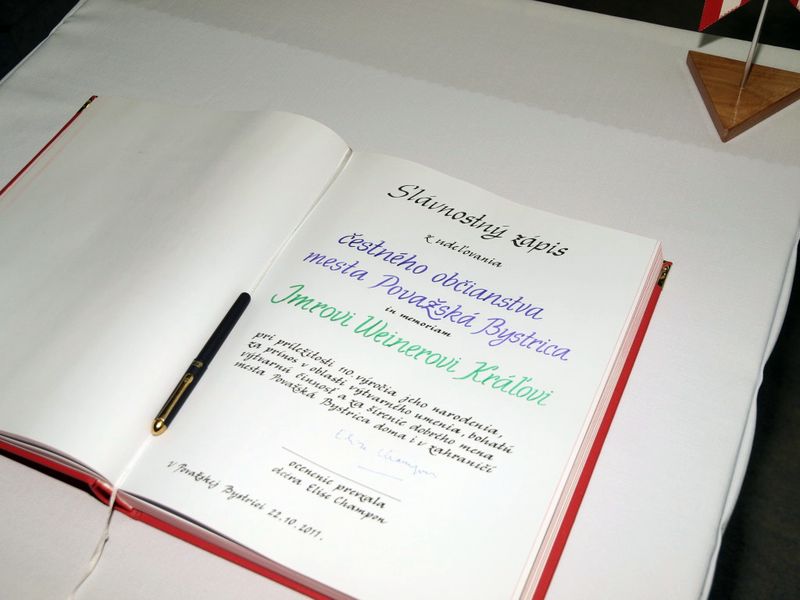 Slávnostný zápis
z udeľovania
čestného občianstva
mesta Považská Bystrica
in memoriam
Imrovi Weinerovi Kráľovi
pri príležitosti 110. výročia jeho narodenia,
za prínos v oblasti výtvarného umenia, bohatú
výtvarnú činnosť a za šírenie dobrého mena
mesta Považská Bystrica doma i v zahraničí
Elise Champon
ocenenie prevzala
dcéra Elise Champon
V Považskej Bystrici 22. 10. 2011.